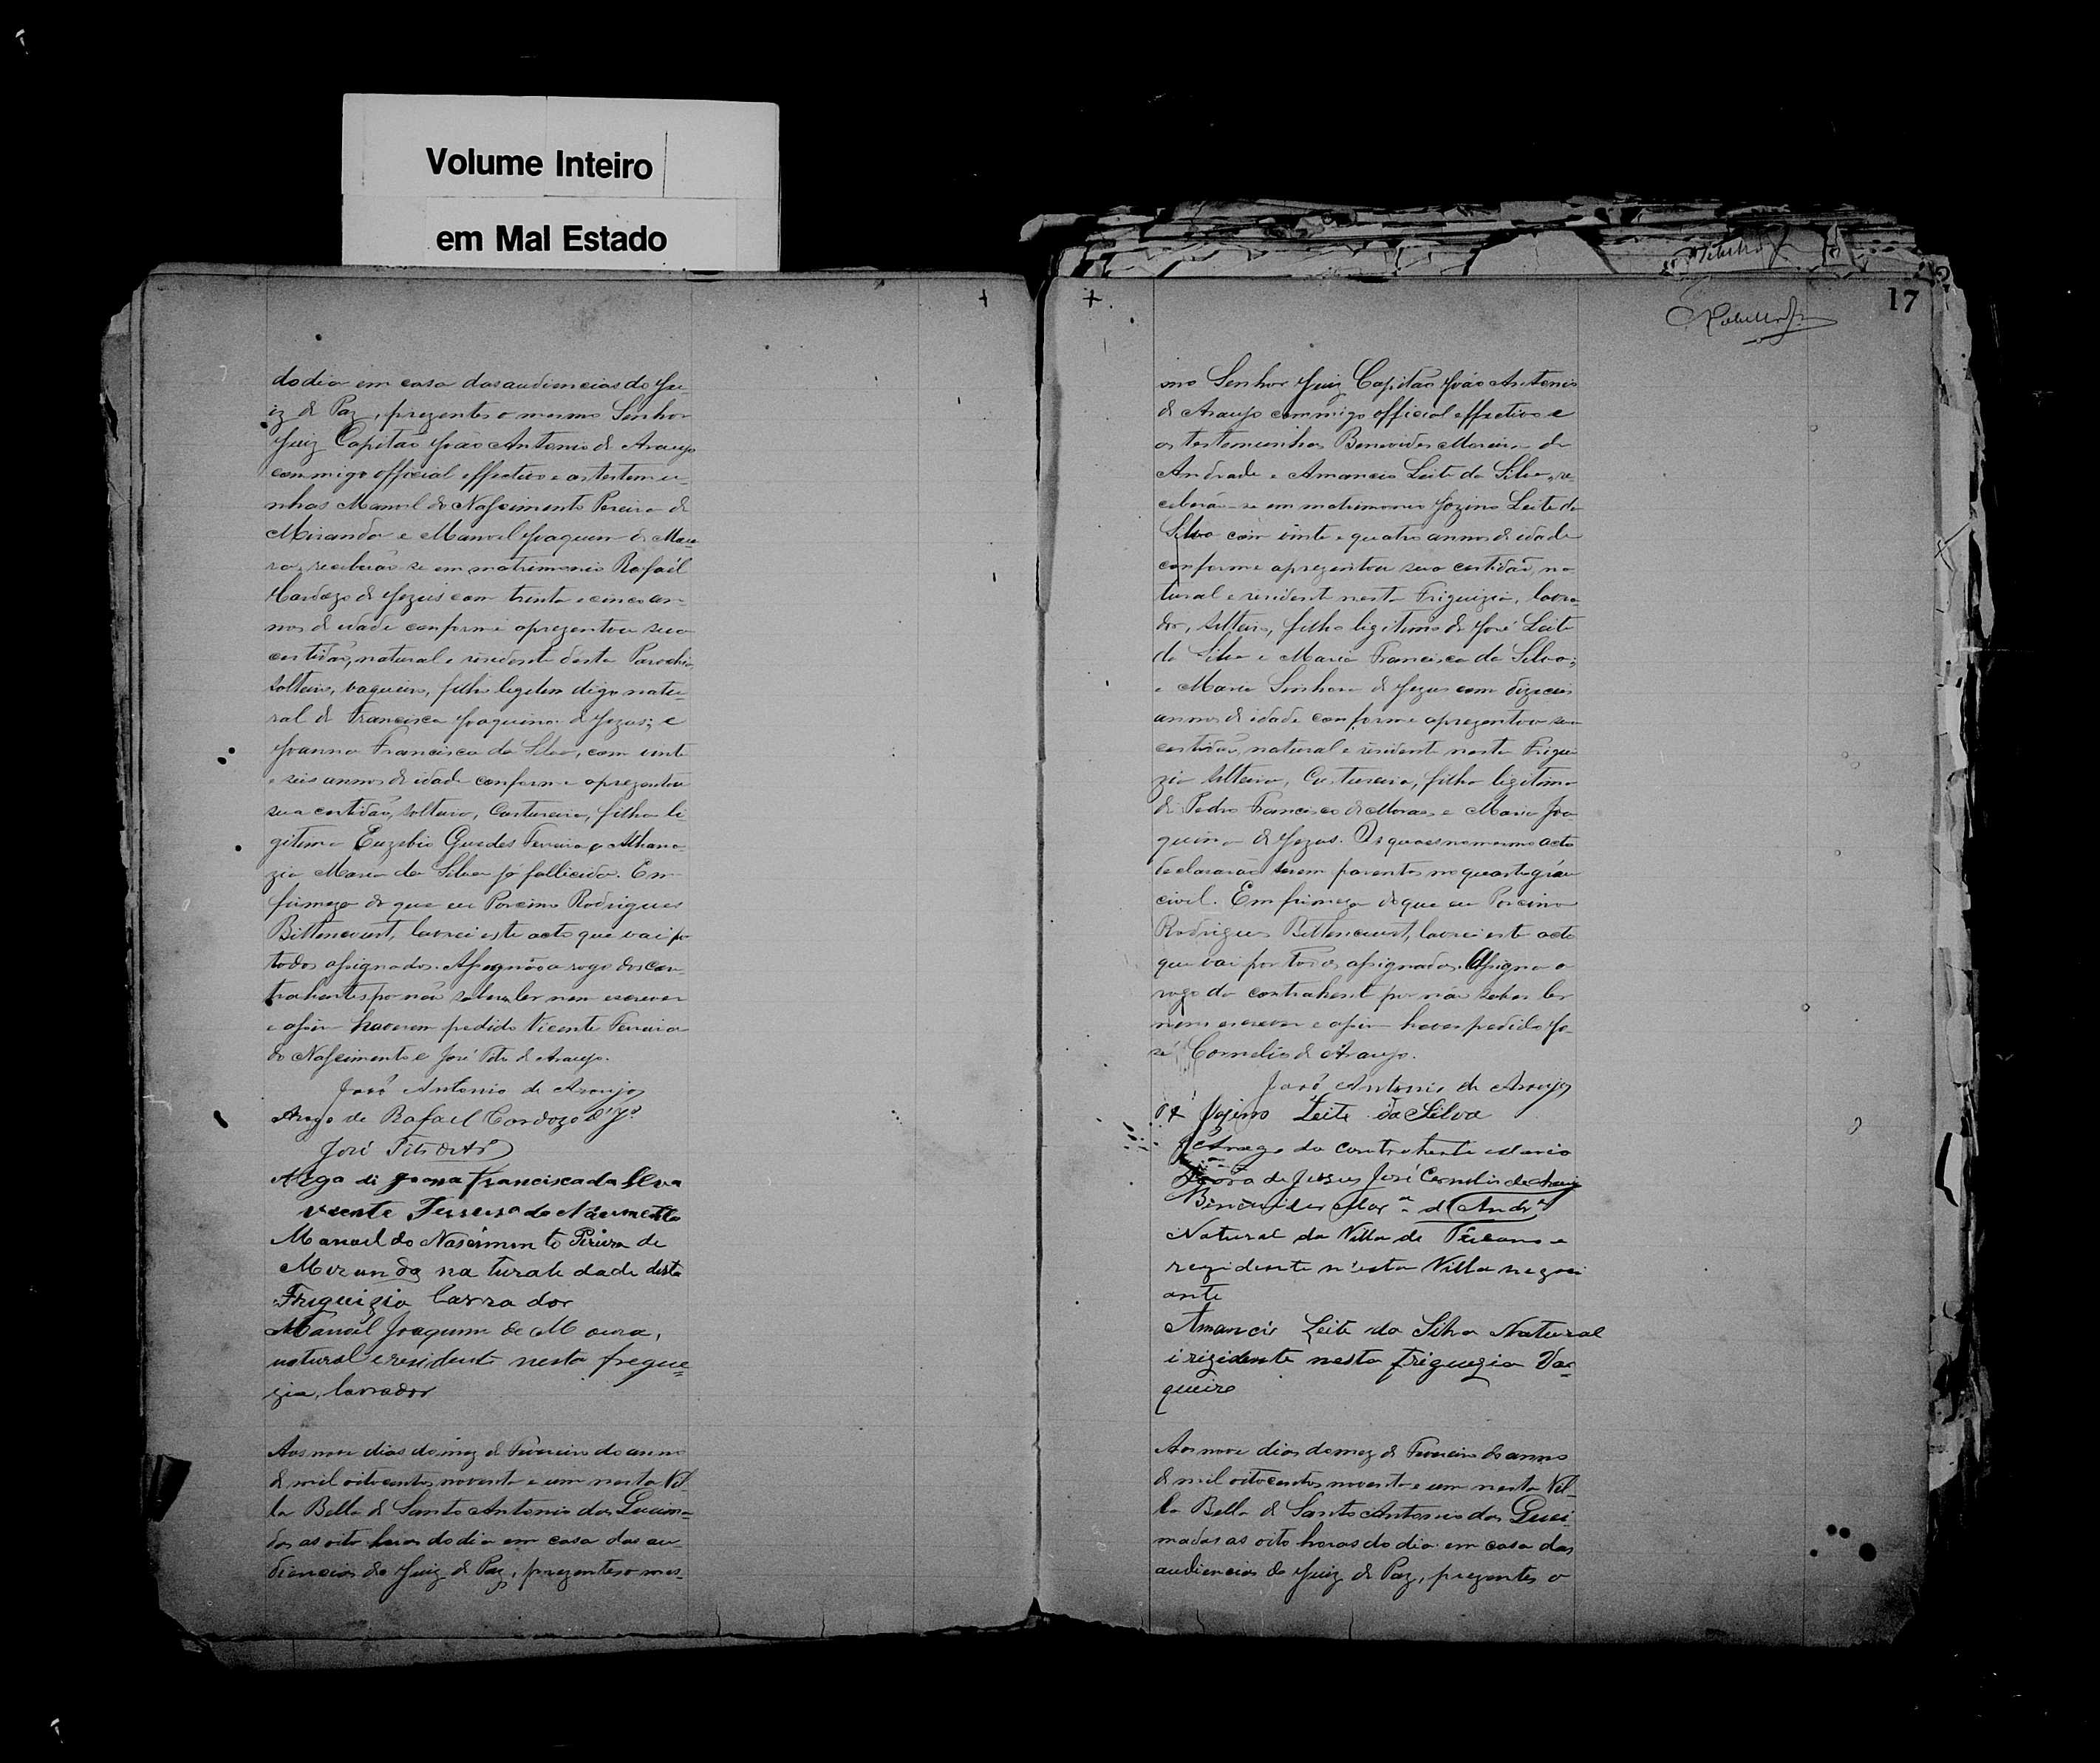 Volume Inteiro
em Mal Estado
do dia em casa das audiencias do Ju-
iz de Paz, prezentes o mesmo Senhor
Juiz Capitão João Antonio de Araujo
commigo official effectivo e as testemu-
nhas Manoel do Nascimento Pereira de
Miranda e Manoel Joaquim de Mou-
ra, receberão-se em matrimonio Rafael
Cardozo de Jezus com trinta e cinco an-
nos de idade conforme aprezentou sua
certidão, natural e rezidente desta Parochia
solteiro, vaqueiro, filho legitimo digo natu-
ral de Francisca Joaquina de Jezus; e
Joanna Francisca da Silva, com vinte
e seis annos de idade conforme aprezentou
sua certidão, solteira, Custureira, filha le-
gitima Euzebio Guedes Ferreira e Athana-
zia Maria da Silva já fallicida. Em
firmeza do que eu Porcino Rodrigues
Bittencourt, lavrei este acto que vai por
todos assignados. Assignão a rogo dos con-
trahentes por não saber ler nem escrever
e assim haverem pedido Vicente Ferreira
do Nascimento e José Tito de Araujo.
João Antonio de Araujo
Arogo de Rafael Cardozo d' Jº
José Tito
Arogo di Joana Francisca da Silva
Vicente Ferreira do Nacimento
Manoel do Nascimento Pirira de
Mirunda na turale dade desta
Friguizia Lavra dor
Manoel Joaquim de Moura,
natural e residente nesta fregue=
zia, lavrador
Aos nove dias do mez de Fevereiro do anno
de mil oitocentos noventa e um nesta Vil-
la Bella de Santo Antonio das Queima-
das as oito horas do dia em casa das au-
diencias do Juiz de Paz, prezentes o mes-
17
mo Senhor Juiz Capitão João Antonio
de Araujo commigo official effectivo e
as testemunhas Benevides Moreira de
Andrade e Amancio Leite da Silva, re-
ceberão-se em matrimonio Jozino Leite da
Silva com vinte e quatro annos de idade
conforme aprezentou sua certidão, na-
tural e rezidente nesta Friguizia, lavra-
dor, solteiro, filho ligitimo de José Leite
da Silva e Maria Francisca da Silva;
e Maria Senhora de Jezus com dizeseis
annos de idade conforme aprezentou sua
certidão, natural e rezidente nesta Frigui-
zia solteira, Custureira, filha legitima
de Pedro Francisco de Moraes e Maria Joa-
quina de Jezus. Os quaes no mesmo acto
declararão serem parentes no quarto gráu
civil. Em firmeza do que eu Porcino
Rodrigues Bittencourt, lavrei este acto
que vai por todos assignados. Assigna a
rogo da contrahente por não saber ler
nem escrever e assim haver pedido Jo-
sé Cornelio de Araujo.
João Antonio de Araujo
Jozino Leite da Silva
Arogo da contrahente Maria
de Jesus José Cornelio de Araujo
Benevides Morª d'Andrª
Natural da Villa de Tucano e
rezidente n'esta Villa negoci
ante
Amancio Leite da Silva Natural
i rizidente nesta friguezia Va-
queiro
Aos nove dias do mez de Fevereiro do anno
de mil oitocentos noventa e um nesta Vil-
la Bella de Santo Antonio das Quei-
madas as oito horas do dia em casa das
audiencias do Juiz de Paz, prezentes o